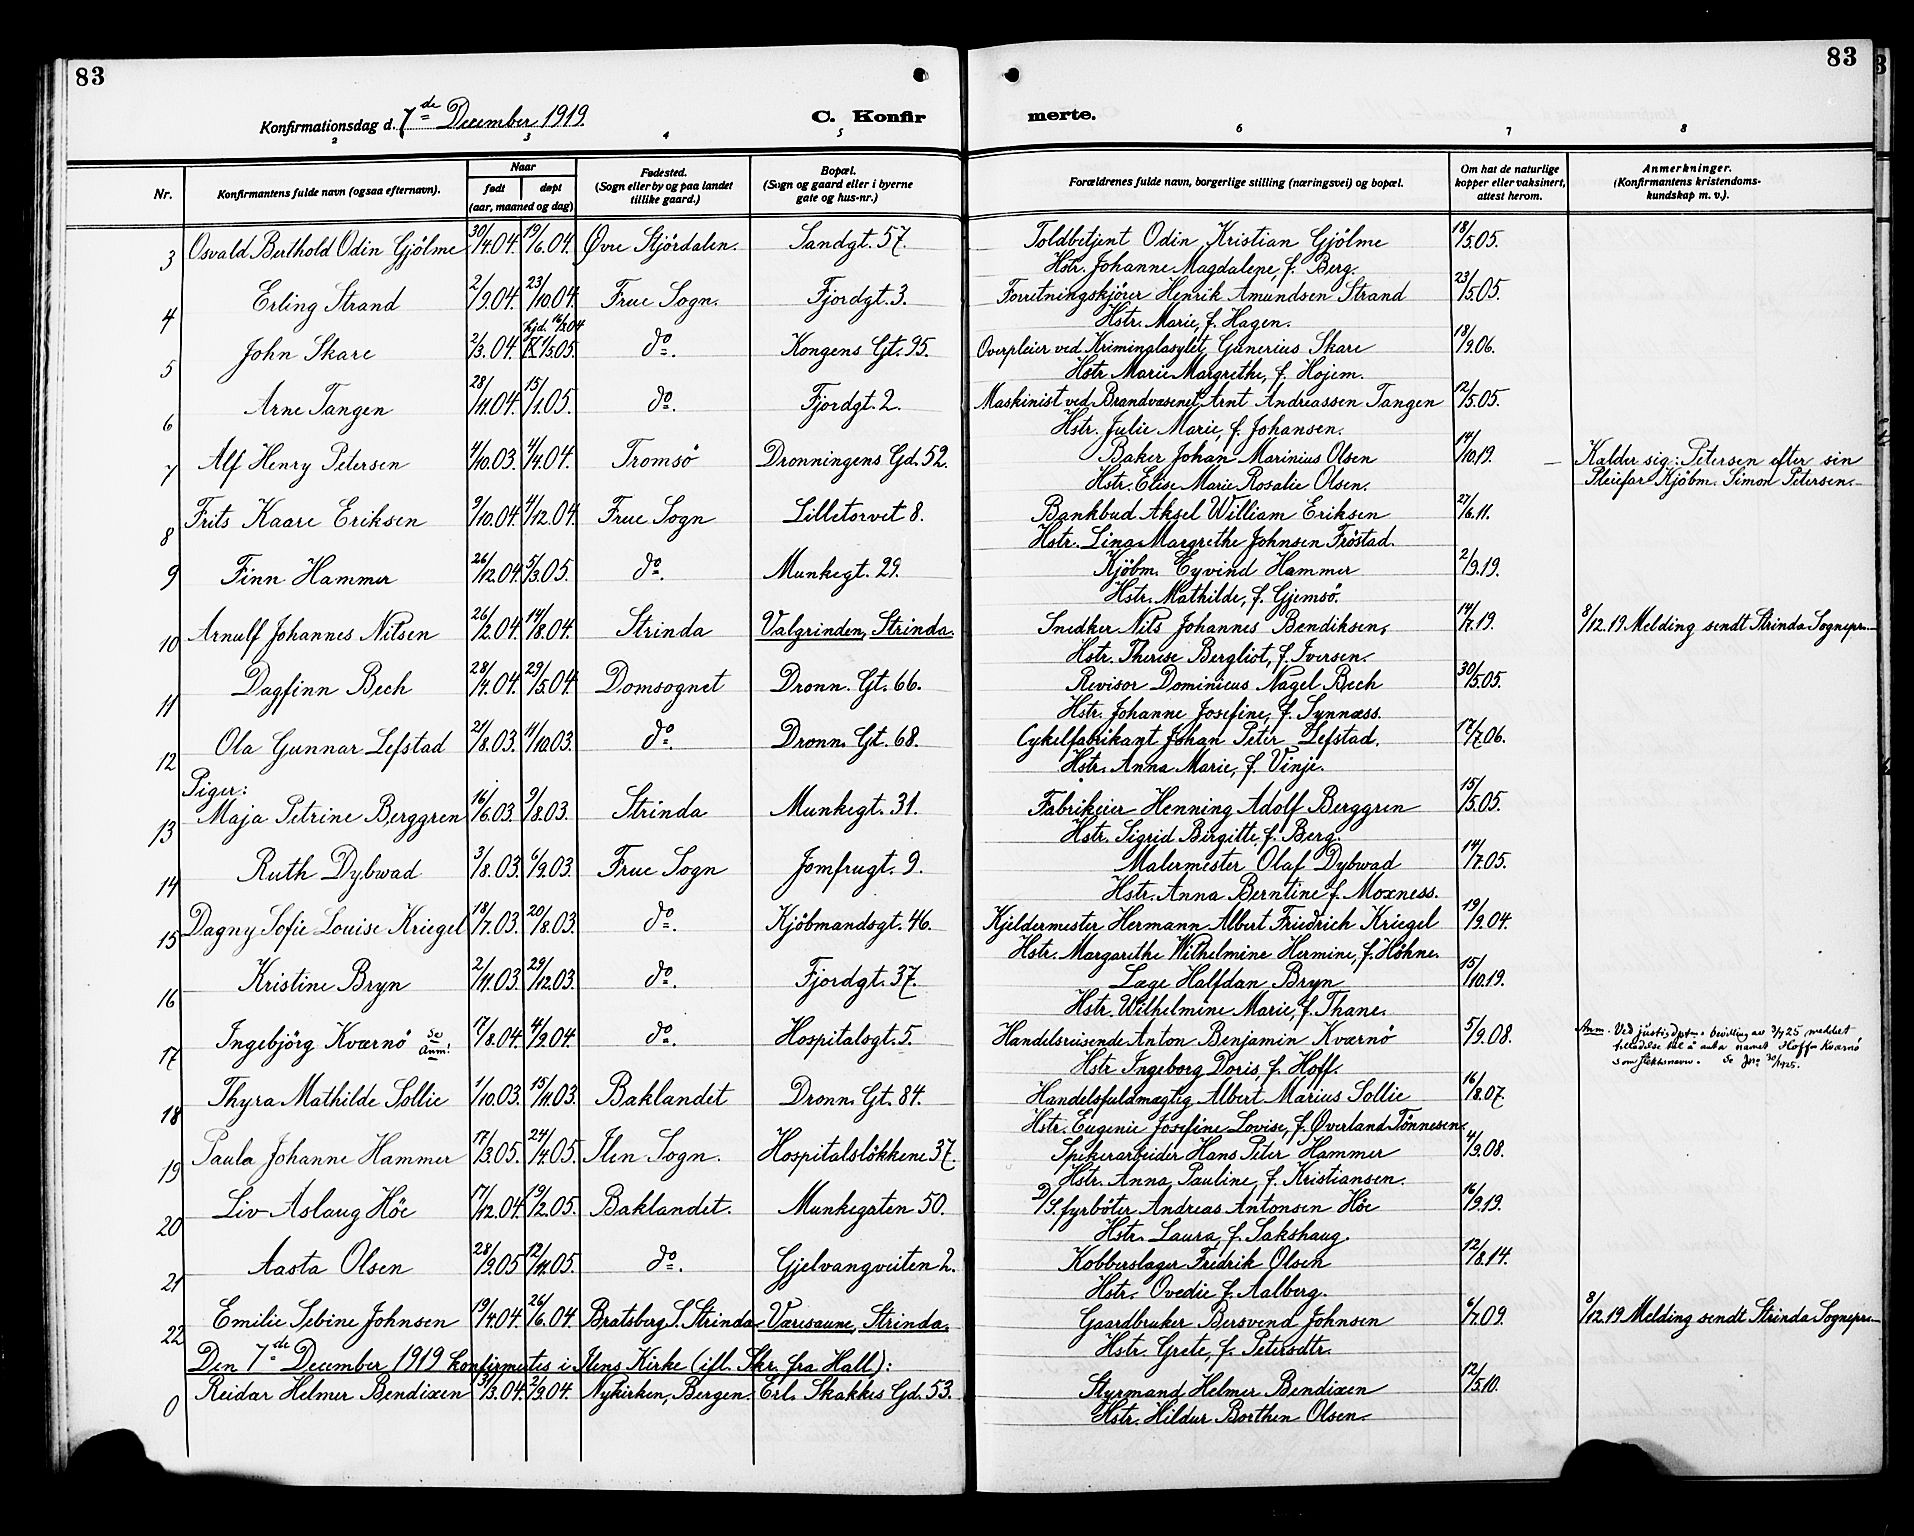 83
83
Konfirmationsdag d. 7de December 1919.
C. Konfirmerte.
2 3 4 5 6 7 8
Nr. Konfirmantens fulde navn (ogsaa efternavn). Naar født døpt (aar, maaned og dag) Fødested. (Sogn eller by og paa landet tillike gaard.) Bopæl. (Sogn og gaard eller i byerne gate og hus-nr.) Forældrenes fulde navn, borgerlige stilling (næringsvei) og bopæl. Om hat de naturlige kopper eller vaksinert, attest herom. Anmerkninger. (Konfirmantens kristendomskundskap m. v.).
3 Osvald Berthold Odin Gjölme 30/4.04. 19/6.04. Øvre Stjördalen. Sandgt. 57. Toldbetjent Odin Kristian Gjölme 18/5.05.
Hstr. Johanne Magdalene, f. Berg.
4 Erling Strand 2/9.04. 23/10.04. Frue Sogn. Fjordgt. 3. Forretningskjörer Henrik Amundsen Strand 23/5.05.
Hstr. Marie, f. Hagen.
5 John Skare 2/3.04. hjd. 16/3.04 K 1/5.05. do. Kongens Gt. 95. Overpleier ved Kriminalasylet, Gunerius Skare 18/9.06.
Hstr. Marie Margrethe, f. Hojem.
6 Arne Tangen 28/11.04. 15/1.05. do. Fjordgt. 2. Maskinist ved Brandvæsenet, Arnt Andreassen Tangen 12/5.05.
Hstr. Julie Marie, f. Johansen.
7 Alf Henry Petersen 4/10.03. 4/4.04. Tromsö Dronningens Gd. 52. Baker Johan Marinius Olsen 14/10.19. Kalder sig: Petersen efter sin
Hstr. Elise Marie Rosalie Olsen. Pleiefar Kjöbm. Simon Petersen.
8 Frits Kaare Eriksen 9/10.04. 4/12.04. Frue Sogn Lilletorvet 8. Bankbud Aksel William Eriksen 27/6.11.
Hstr. Lina Margrethe Johnsen Fröstad.
9 Finn Hammer 26/12.04. 5/3.05. do. Munkegt. 29. Kjöbm. Eyvind Hammer 2/9.19.
Hstr. Mathilde, f. Gjemsö.
10 Arnulf Johannes Nilsen 26/2.04. 14/8.04. Strinda Valgrinden, Strinda. Snedker Nils Johannes Bendiksen, 14/7.19. 8/12.19 Melding sendt Strinda Sognepr.
Hstr. Therese Bergliot, f. Iversen.
11 Dagfinn Bech 28/4.04. 29/5.04. Domsognet Dronn. Gt. 66. Revisor Dominicus Nagel Bech 30/5.05.
Hstr. Johanne Josefine, f. Synnæss.
12 Ola Gunnar Lefstad 21/8.03. 11/10.03. do. Dronn. Gt. 68. Cykelfabrikant Johan Peter Lefstad. 17/7.06.
Hstr. Anna Marie, f. Vinje.
Piger:
13 Maja Petrine Berggren 16/6.03. 9/8.03. Strinda Munkegt. 31. Fabrikeier Henning Adolf Berggren 15/5.05.
Hstr. Sigrid Birgitte, f. Berg.
14 Ruth Dybwad 3/8.03. 6/9.03. Frue Sogn Jomfrugt. 9. Malermester Olaf Dybwad 14/7.05.
Hstr. Anna Berntine f. Moxness.
15 Dagny Sofie Louise Kriegel 18/7.03. 20/8.03. do. Kjöbmandsgt. 46. Kjeldermester Hermann Albert Friedrich Kriegel 19/9.04.
Hstr. Margarethe Wilhelmine Hermine, f. Höhne.
16 Kristine Bryn 2/11.03. 29/12.03. do. Fjordgt. 37. Læge Halfdan Bryn 15/10.19.
Hstr. Wilhelmine Marie, f. Thane.
17 Ingebjörg Kværnö se Anm! 17/8.04. 4/9.04. do. Hospitalsgt. 5. Handelsreisende Anton Benjamin Kværnö 5/9.08. Anm. Ved justisdptm.s bevilling av 3/7 25 meddelt
tilladelse til å anta navnet Hoff-Kværnö
Hstr. Ingeborg Doris, f. Hoff. som slektsnavn. Se Jnr 30/1925.
18 Thyra Mathilde Sollie 1/10.03. 15/11.03. Baklandet Dronn. Gt. 84. Handelsfuldmægtig Albert Marius Sollie 16/8.07.
Hstr. Eugenie Josefine Lovise, f. Øverland Tönnesen.
19 Paula Johanne Hammer 17/3.05. 24/4.05. Ilen Sogn. Hospitalslökkene 37. Spikerarbeider Hans Peter Hammer 4/9.08.
Hstr. Anna Pauline, f. Kristiansen.
20 Liv Aslaug Höe 17/12.04. 19/2.05. Baklandet. Munkegaten 50. D/S. fyrböter Andreas Antonsen Höe 16/9.19.
Hstr. Laura, f. Sakshaug.
21 Aasta Olsen 28/9.05 12/11.05. do. Gjelvangveiten 2. Kobberslager Fredrik Olsen 12/8.14.
Hstr. Ovedie f. Aalberg.
22 Emilie Sebine Johnsen 19/4.04. 26/6.04. Bratsberg S. Strinda Væresaune, Strinda. Gaardbruker Bersvend Johnsen 6/7.09. 8/12.19 Melding sendt Strinda Sognepr.
Hstr. Grete, f. Petersdtr.
Den 7de December 1919 konfirmertes i Ilens Kirke (ifl. Skr. fra Hall):
0 Reidar Helmer Bendixen 31/3.04. 2/9.04. Nykirken, Bergen. Erl. Skakkes Gd. 53. Styrmand Helmer Bendixen 12/5.10.
Hstr. Hildur Borthen Olsen.